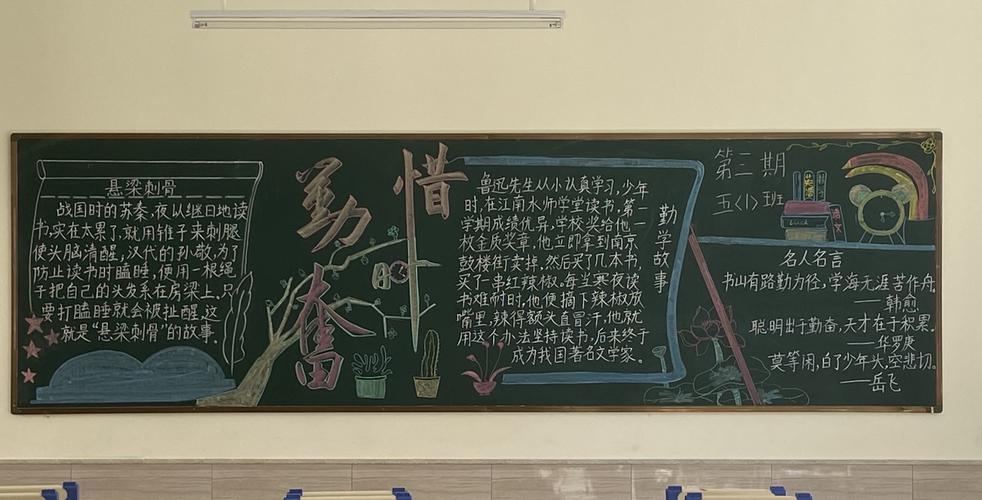 悬梁刺骨
战国时的苏秦，夜以继日地读
书，实在太累了，就用锥子来刺腿
使头脑清醒，汉代的孙敬，为了
防止读书时瞌睡，便用一根绳
子把自己的头发系在房梁上，只
要打瞌睡就会被扯醒，这
就是“悬梁刺骨”的故事.
勤奋
惜时
鲁迅先生从小认真学习，少年
时，在江南水师学堂读书，第一
学期成绩优异，学校奖给他一
枚金质奖章，他立即拿到南京
鼓楼街卖掉，然后买了几本书，
买了一串红辣椒，每当寒夜读
书难耐时，他便摘下辣椒放
嘴里，辣得额头直冒汗，他就
用这个办法坚持读书，后来终于
成为我国著名文学家。
勤学故事
第二期
五〈1〉班
名人名言
书山有路勤为径，学海无涯苦作舟
——韩愈
聪明出于勤奋，天才在于积累.
——华罗庚
莫等闲，白了少年头，空悲切。
——岳飞